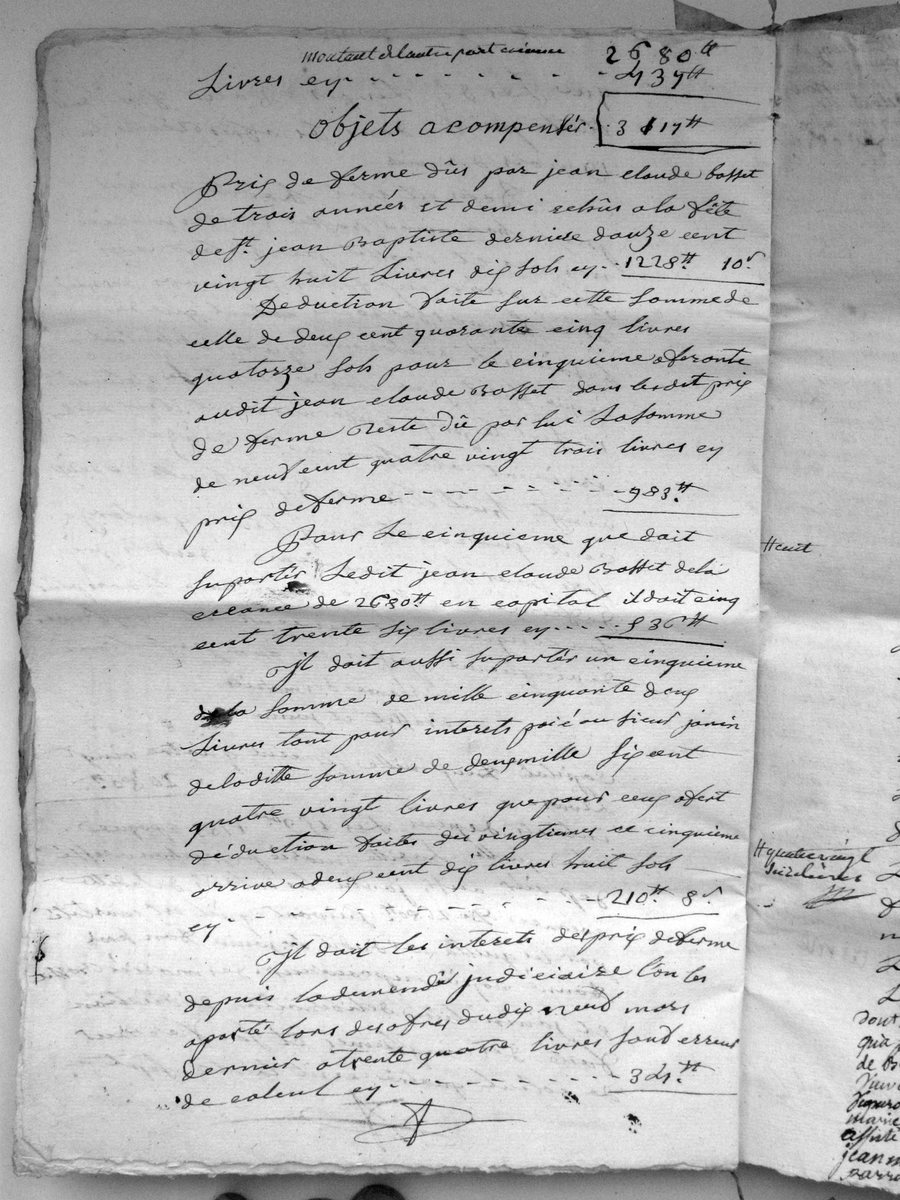 montant de lautre part cy 2680 ₶
Livres cy - - - - - - - - - 437 ₶
objets a compensér - - 3117 ₶
Prix de ferme dûs par jean claude basset
de trois anneés et demi echûs a la fête
de st. jean Baptiste derniere douze cent
vingt huit Livres dix sols cy - - 1228 ₶ 10 s
Deduction faite sur cette somme de
celle de deux cent quarante cinq livres
quatorze sols pour le cinquieme aferante
audit jean claude Basset dans lesdit prix
de ferme Reste Dû par lui La somme
de neuf cent quatre vingt trois livres cy
prix de ferme - - - - - - - - - 983 ₶
Pour Le cinquieme que doit
suportér Ledit jean claude Basset de la
creance de 2680 ₶ en capital il doit cinq
cent trente six livres cy - - - - 536 ₶
Il doit aussi suportér un cinquieme
de la somme de mille cinquante deux
Livres tant pour interets paié au sieur janin
de laditte somme de deux mille six cent
quatre vingt livres que pour ceux ofert
déduction faites des vingtiemes ce cinquieme
arrive a deux cent dix livres huit sols
cy - - - - - - - - - 210 ₶ 8 s
Il doit les interets des prix de ferme
depuis la demende judiciaire L'on les
aporté lors des ofres du dix neuf mars
dernier a trente quatre livres sauf erreur
de calcul cy - - - - - - - - - 34 ₶
₶ cent
₶ quatre vingt
dont
qua
de B
assiste
jean m